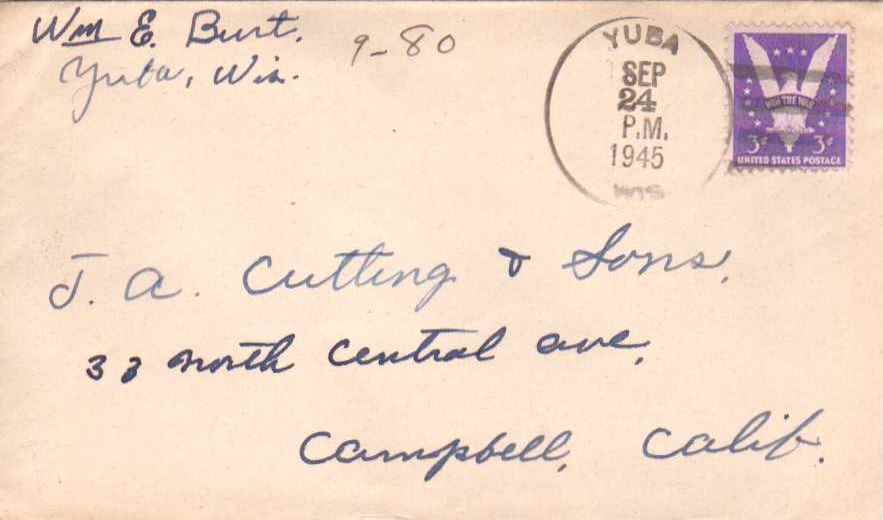 Wm E. Burt.
Yuba, Wis.
9-80
YUBA
SEP
24
P.M.
1945
WIS
WIN THE WAR
3¢ 3¢
UNITED STATES POSTAGE
J. A. Cutting & Sons,
33 North Central Ave,
Campbell, Calif.